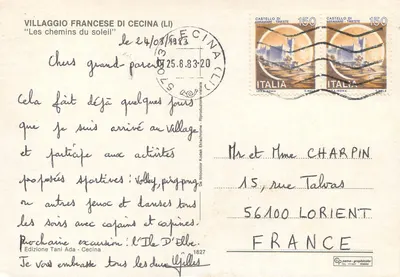 VILLAGGIO FRANCESE DI CECINA (LI)
"Les chemins du soleil"
le 24/08/1983
Chers grand-parents
Cela fait déjà quelques jours
que je suis arrivé au village
et participe aux activités
proposées sportives : Volley, ping pong
ou autres jeux et danses tous
les soirs avec copains et copines.
Prochaine excursion : l'Ile D'Elbe.
Je vous embrasse tous les deux Gilles
Edizione Tani Ada - Cecina
1827
57023 CECINA (LI)
25.8.83-20
CASTELLO DI MIRAMARE TRIESTE
150
ITALIA
CASTELLO DI MIRAMARE TRIESTE
150
ITALIA
Mr et Mme CHARPIN
15, rue Talvas
56100 LORIENT
FRANCE